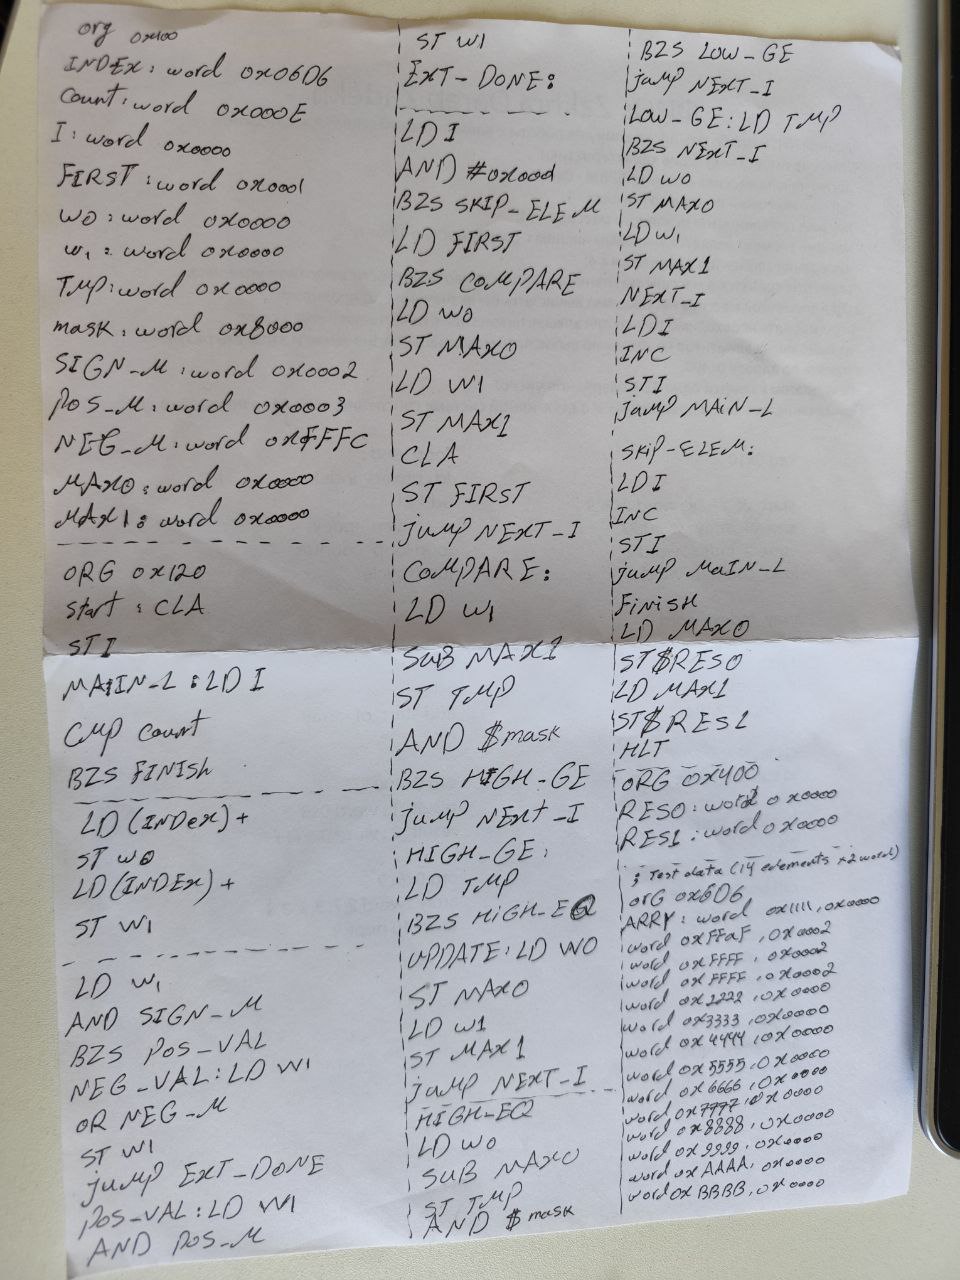 org 0x100
INDEX: word 0x06D6
Count: word 0x000E
I: word 0x0000
FIRST: word 0x0001
W0: word 0x0000
W1: word 0x0000
TMP: word 0x0000
mask: word 0x8000
SIGN_M: word 0x0002
POS_M: word 0x0003
NEG_M: word 0xFFFC
MAX0: word 0x0000
MAX1: word 0x0000
ORG 0x120
start: CLA
ST I
MAIN_L: LD I
CMP Count
BZS FINISH
LD (INDex)+
ST W0
LD (INDEx)+
ST W1
LD W1
AND SIGN_M
BZS POS_VAL
NEG_VAL: LD W1
OR NEG_M
ST W1
jump EXT_DONE
POS_VAL: LD W1
AND POS_M
ST W1
EXT_DONE:
LD I
AND #0x000d
BZS SKIP_ELEM
LD FIRST
BZS COMPARE
LD W0
ST MAX0
LD W1
ST MAX1
CLA
ST FIRST
jump NEXT_I
COMPARE:
LD W1
SUB MAX1
ST TMP
AND $mask
BZS HIGH_GE
jump NExt_I
HIGH_GE:
LD TMP
BZS HIGH_EQ
UPDATE: LD W0
ST MAX0
LD W1
ST MAX1
jump NEXT_I
HIGH_EQ
LD W0
SUB MAX0
ST TMP
AND $mask
BZS LOW_GE
jump NEXT_I
LOW_GE: LD TMP
BZS NEXT_I
LD W0
ST MAX0
LD W1
ST MAX1
NEXT_I
LD I
INC
ST I
jump MAIN_L
SKIP_ELEM:
LD I
INC
ST I
jump MAIN_L
FINISH
LD MAX0
ST $RES0
LD MAX1
ST $RES1
HLT
ORG 0x400
RES0: word 0x0000
RES1: word 0x0000
; Test data (14 elements x2 word)
orG 0x6D6
ARRY: word 0x1111, 0x0000
word 0xFFaF, 0x0002
word 0xFFFF, 0x0002
word 0xFFFF, 0x0002
word 0x2222, 0x0000
word 0x3333, 0x0000
word 0x4444, 0x0000
word 0x5555, 0x0000
word 0x6666, 0x0000
word 0x7777, 0x0000
word 0x8888, 0x0000
word 0x9999, 0x0000
word 0xAAAA, 0x0000
word 0xBBBB, 0x0000